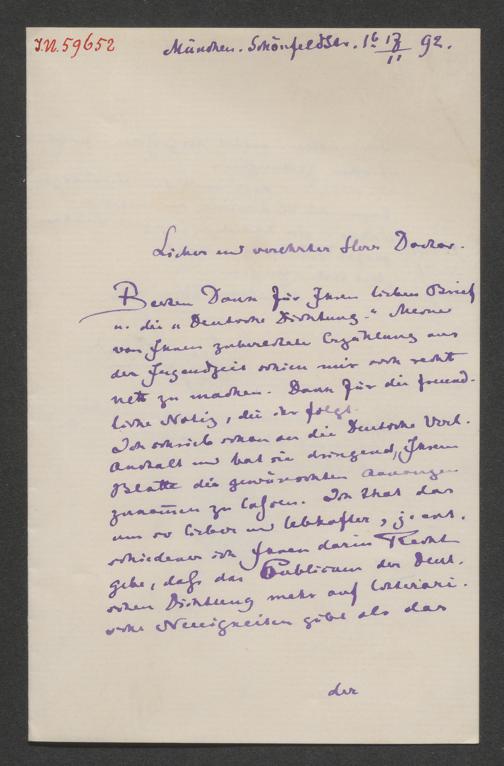 I.N. 59652
München. Schönfeldstr. 1b 17/11 92.
Lieber und verehrter Herr Doctor.
Besten Dank für Ihren lieben Brief
u. die "Deutsche Dichtung." Meine
von Ihnen zubereitete Erzählung aus
der Jugendzeit schien mir sich recht
nett zu machen. Dank für die freund-
liche Notiz, die ihr folgt.
Ich schrieb schon an die Deutsche Verl.
Anstalt und bat sie dringend, Ihrem
Blatte die gewünschten Annoncen
zukom̅en zu lassen. Ich that das
um so lieber und lebhafter, je ent-
schiedener ich Ihnen darin Recht
gebe, daß das Publicum der Deut-
schen Dichtung mehr auf litterari-
sche Neuigkeiten gibt als das
der